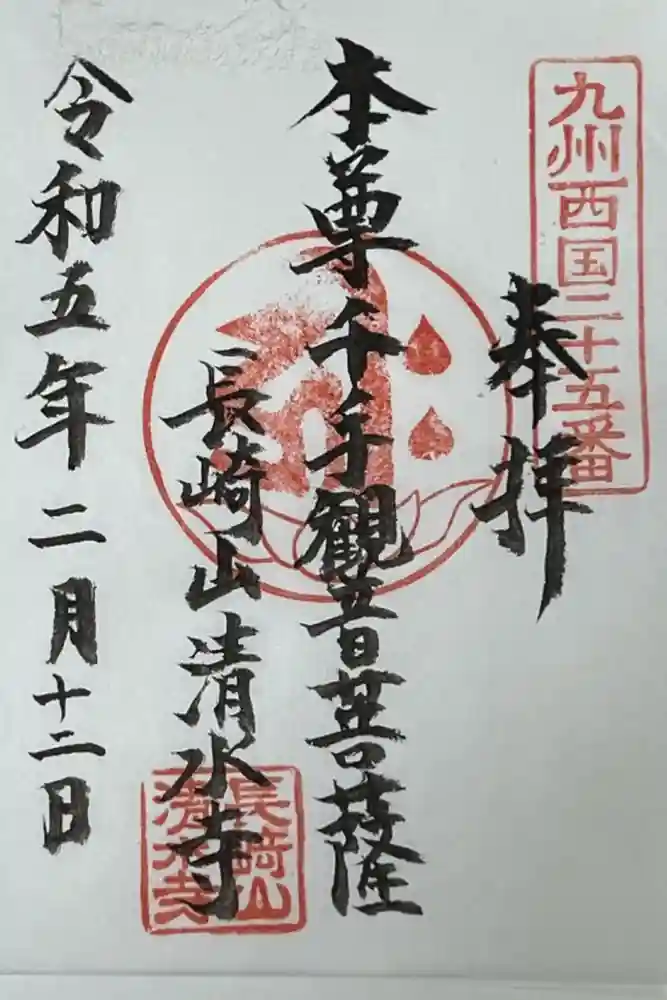 九州西国二十五番
奉拝
本尊千手観音菩薩
長崎山清水寺
長崎山
清水寺
令和五年二月十二日